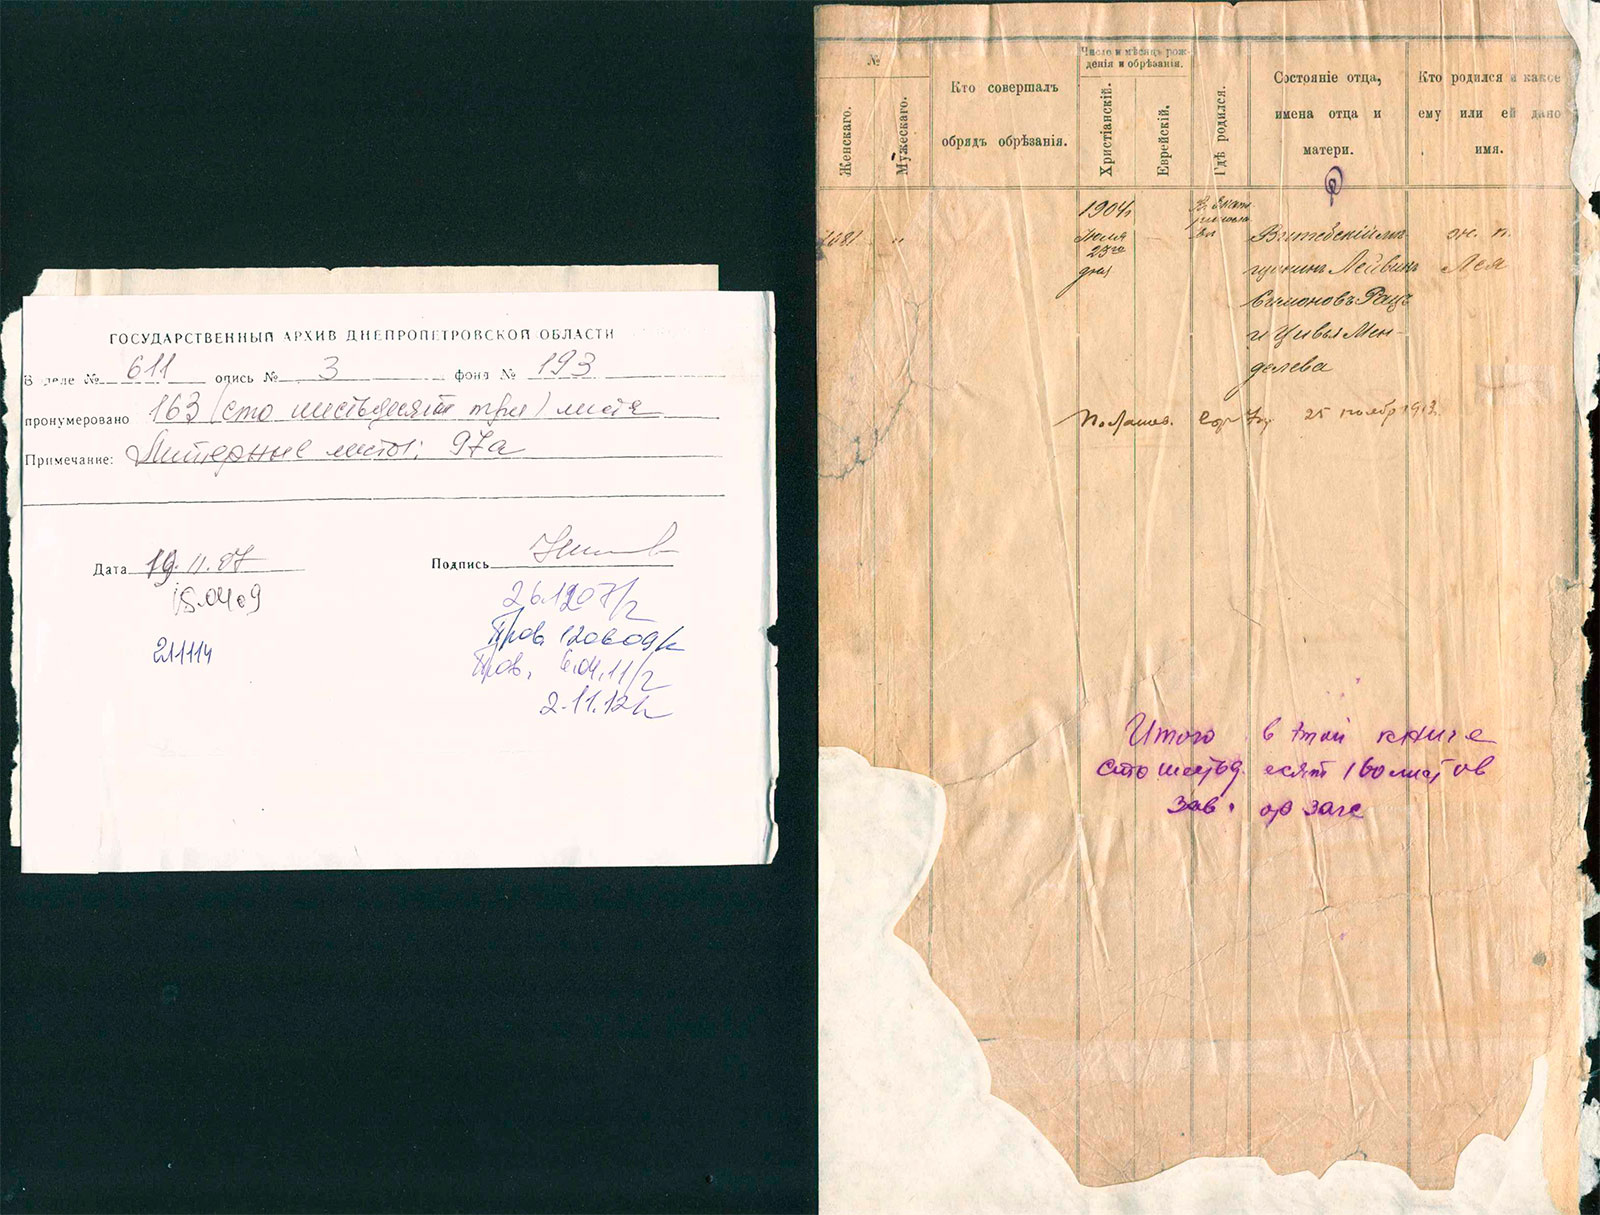 ГОСУДАРСТВЕННЫЙ АРХИВ ДНЕПРОПЕТРОВСКОЙ ОБЛАСТИ
В деле № 611 опись № 3 фонд № 193
пронумеровано 163 (сто шестьдесят три) листа
Примечание: Литерные листы: 97а
Дата 19.11.87 Подпись
15.04.09
26.12.07г
Пров. 12.06.09г
21.11.14
Пров. 6.04.11г
2.11.12г
№
Женскаго.
Мужескаго.
Кто совершалъ
обрядъ обрѣзанія.
Число и мѣсяцъ рож-
денія и обрѣзанія.
Христіанскій.
Еврейскій.
Гдѣ родился.
Состояніе отца,
имена отца и
матери.
Кто родился и какое
ему или ей дано
имя.
1904г
Іюля
23го
дня
Въ Екат
Витебскій мѣ-
щанинъ Лейвик
Симоновъ Рац
и Цивья Мен-
делева
ж. п.
Лея
25 ноябр 1913
Итого в этой книге
сто шестьдесят 160 листов
Зав. ор загс